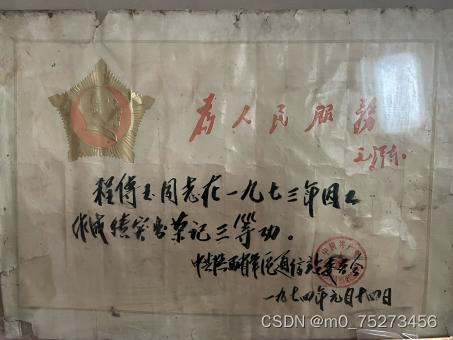 为人民服务
毛泽东
程传玉同志在一九七三年因工
作成绩突出荣记三等功。
中共陕西省军区通信站委员会
一九七四年元月十四日
CSDN @m0_75273456